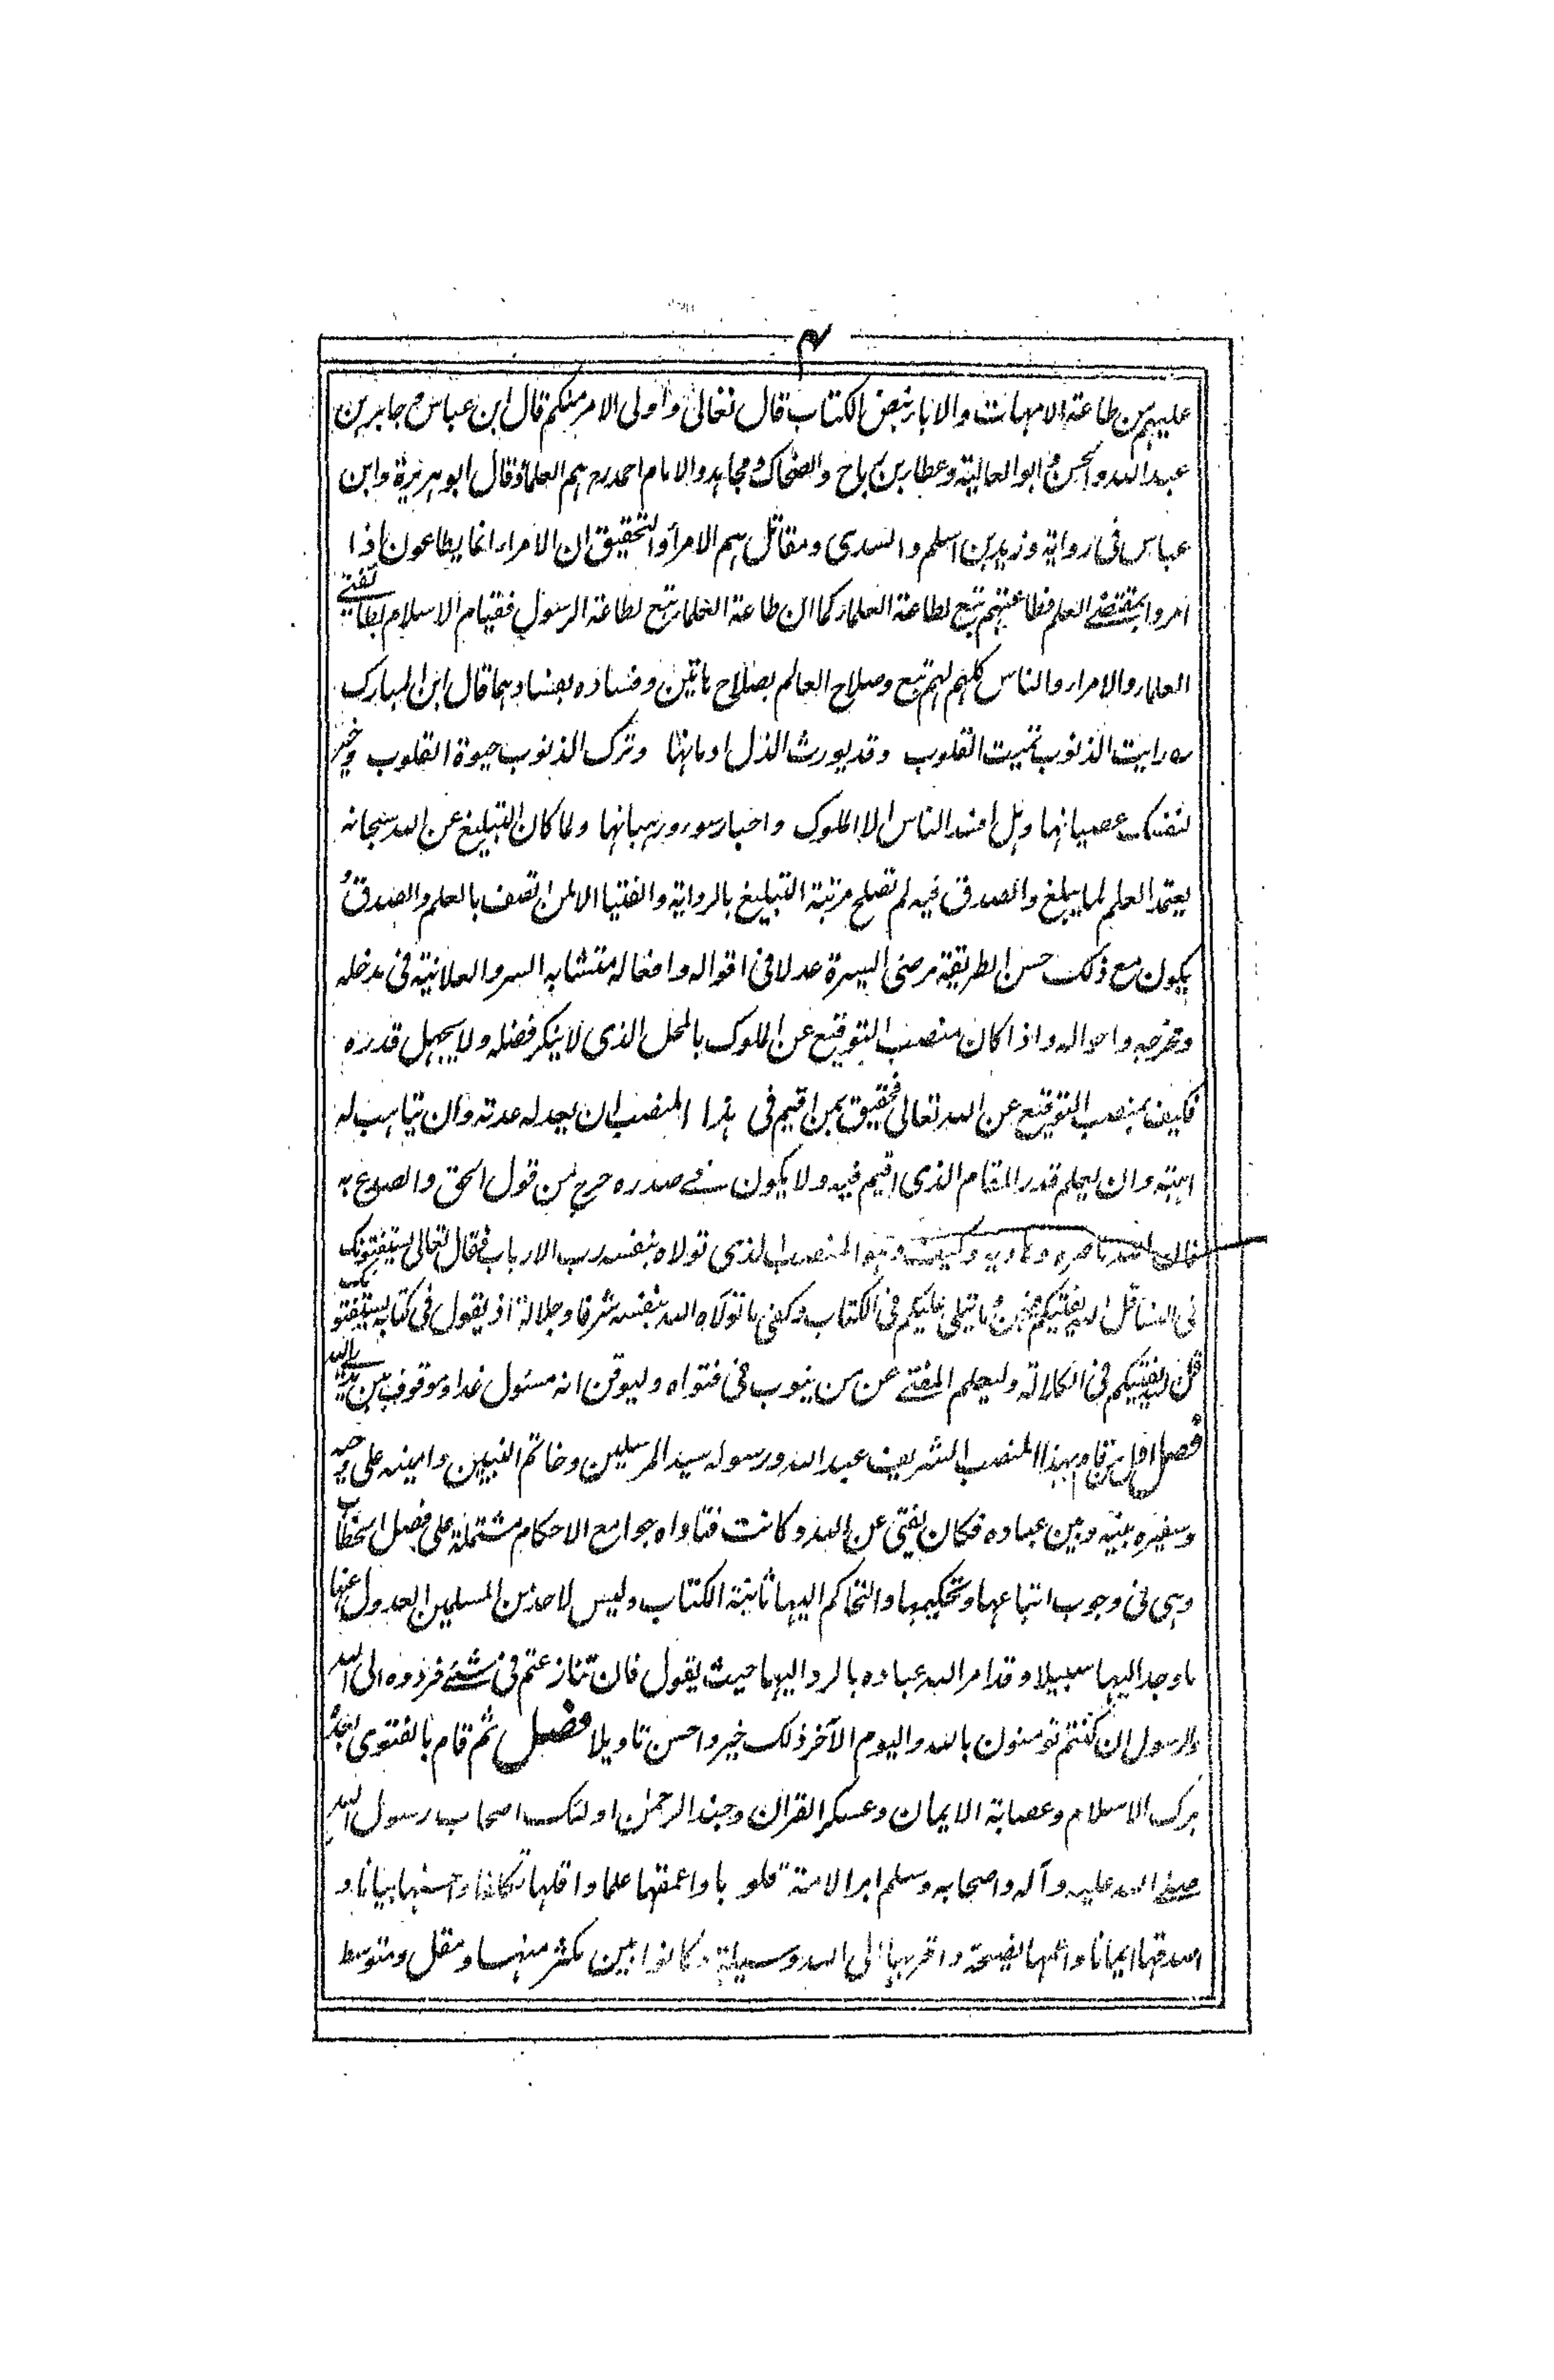 ۴
عليهم من طاعة الامهات والاباء بنص الكتاب قال تعالى واولى الامر منكم قال ابن عباس رض جابر بن
عبد الله والحسن رح ابو العالية وعطاء بن رباح والضحاك ومجاهد والامام احمد رح هم العلماء وقال ابو هريرة وابن
عباس فى رواية وزيد بن اسلم والسدى ومقاتل هم الامراء والتحقيق ان الامراء انما يطاعون اذا
امروا بمقتضے العلم فطاعتهم تبع لطاعة العلماء كما ان طاعة العلماء تبع لطاعة الرسول فقيام الاسلام بطائفتے
العلماء والامراء والناس كلهم لهم تبع وصلاح العالم بصلاح هاتين وفساده بفسادهما قال ابن المبارك
ره رايت الذنوب تميت القلوب وقد يورث الذل ادمانها وترك الذنوب حيوة القلوب وخير
لنفسك عصيانها وهل افسد الناس الا الملوك واحبار سوء ورهبانها ولما كان التبليغ عن الله سبحانه
يعتمد العلم لما يبلغ والصدق فيه لم تصلح مرتبة التبليغ بالرواية والفتيا الا لمن اتصف بالعلم والصدق و
يكون مع ذلك حسن الطريقة مرضى السيرة عدلا فى اقواله وافعاله متشابه السر والعلانية فى مدخله
ومخرجه واحواله واذا كان منصب التوقيع عن الملوك بالمحل الذى لا ينكر فضله ولا يجهل قدره
فكيف بمنصب التوقيع عن الله تعالى فحقيق بمن اقيم فى هذا المنصب ان يعد له عدته وان يتاهب له
اهبته وان يعلم قدر المقام الذى اقيم فيه ولا يكون فے صدره حرج من قول الحق والصدع به
فان الله ناصره وهاديه وكيف وهو المنصب الذى تولاه بنفسه رب الارباب فقال تعالى يستفتونك
فى النساء قل الله يفتيكم فيهن وما يتلى عليكم فى الكتاب وكفى ما تولاه الله بنفسه شرفا وجلالة اذ يقول فى كتابه يستفتونك
قل الله يفتيكم فى الكلالة وليعلم المفتے عن من ينوب فى فتواه وليوقن انه مسئول غدا وموقوف بين يدے الله
فصل اول من قام بهذا المنصب الشريف عبد الله ورسوله سيد المرسلين وخاتم النبيين وامينه على وحيه
وسفيره بينه وبين عباده فكان يفتى عن الله وكانت فتاواه جوامع الاحكام مشتملة على فصل الخطاب
وهى فى وجوب اتباعها وتحكيمها والتحاكم اليها ثابتة الكتاب وليس لاحد من المسلمين العدول عنها
ما وجد اليها سبيلا وقد امر الله عباده بالرد اليها حيث يقول فان تنازعتم فى شئے فردوه الى الله
والرسول ان كنتم تومنون بالله واليوم الآخر ذلك خير واحسن تاويلا فصل ثم قام بالفتوى بعده
برك الاسلام وعصابة الايمان وعسكر القران وجند الرحمٰن اولئك اصحاب رسول الله
صلے الله عليه وآله واصحابه وسلم ابر الامة قلوبا واعمقها علما واقلها تكلفا واحسنها بيانا و
اصدقها ايمانا واعمها نصيحة واقربها الى الله وسيلة وكانوا بين مكثر منها ومقل ومتوسط